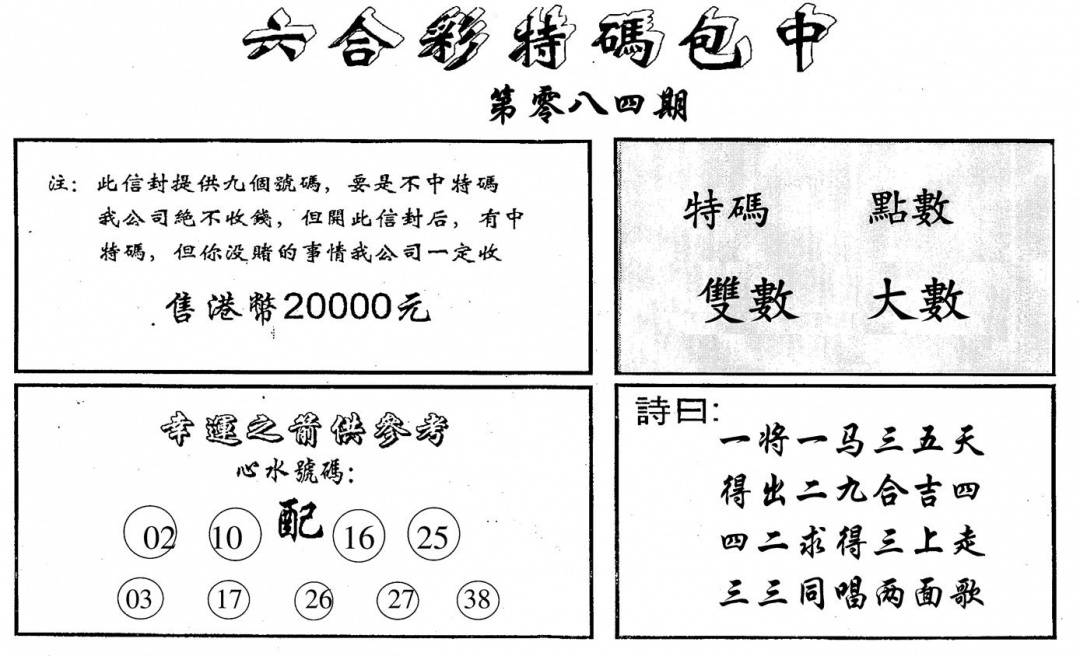 六合彩特碼包中
第零八四期
注：此信封提供九個號碼，要是不中特碼
我公司絕不收錢，但開此信封后，有中
特碼，但你没賭的事情我公司一定收
售港幣20000元
特碼 點數
雙數 大數
幸運之箭供參考
心水號碼：
02 10 配 16 25
03 17 26 27 38
詩曰：
一将一马三五天
得出二九合吉四
四二求得三上走
三三同唱两面歌